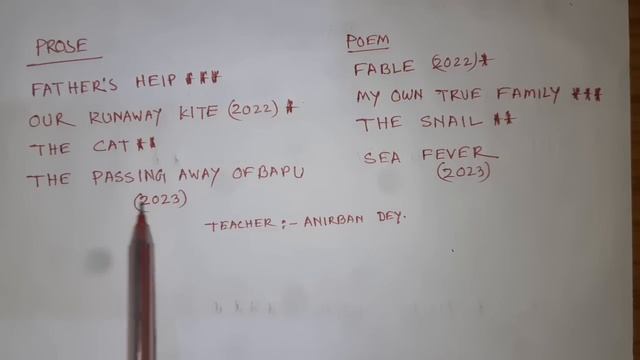 PROSE
FATHER'S HEIP ***
OUR RUNAWAY KITE (2022) *
THE CAT **
THE PASSING AWAY OF BAPU
(2023)
POEM
FABLE (2022) *
MY OWN TRUE FAMILY ***
THE SNAIL **
SEA FEVER
(2023)
TEACHER :- ANIRBAN DEY.